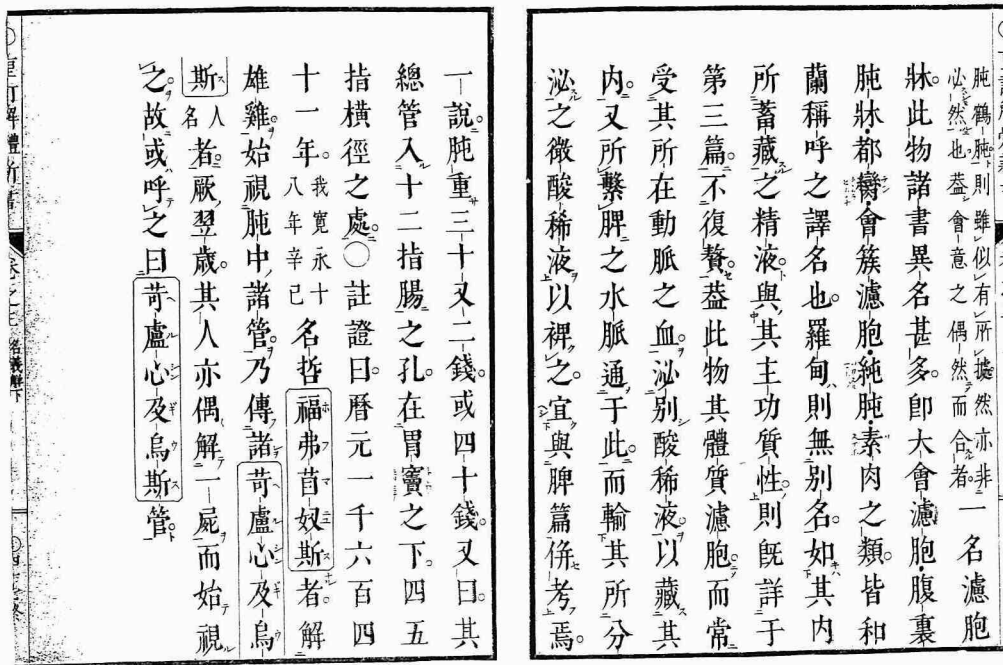 肫鶴肫則雖似有所據然亦非
必然也葢會意之偶然而合者
一名濾胞
牀此物諸書異名甚多卽大會濾胞腹裏
肫牀都臠會簇濾胞純肫素肉之類皆和
蘭稱呼之譯名也羅甸則無別名如其内
所蓄藏之精液與其主功質性則旣詳于
第三篇不復贅葢此物其體質濾胞而常
受其所在動脈之血泌別酸稀液以藏其
内又所繫脾之水脈通于此而輸其所分
泌之微酸稀液以裨之宜與脾篇倂考焉
一說肫重三十又二錢或四十錢又曰其
總管入十二指腸之孔在胃竇之下四五
指橫徑之處○註證曰曆元一千六百四
十一年我寛永十八年辛己名哲福弗苜奴斯者解
雄雞始視肫中諸管乃傳諸苛盧心及烏
斯人名者厥翌歲其人亦偶解一屍而始視
之故或呼之曰苛盧心及烏斯管